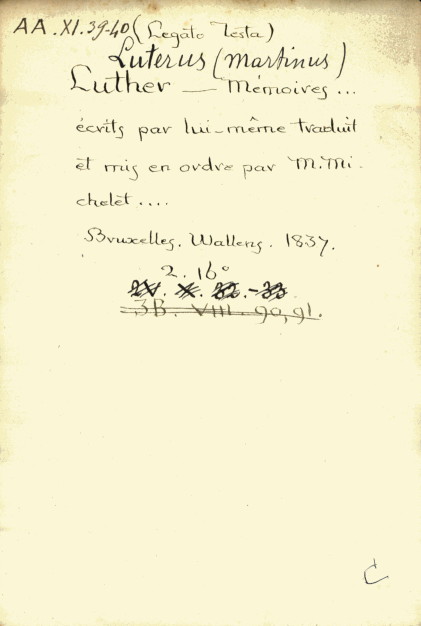 AA.XI.39-40 (Legato Testa)
Luterus (Martinus)
Luther — Mémoires ...
écrits par lui-même traduit
et mis en ordre par M. Mi-
chelet ....
Bruxelles. Wallens. 1837.
2. 16°
3B. VIII. 90, 91.
C